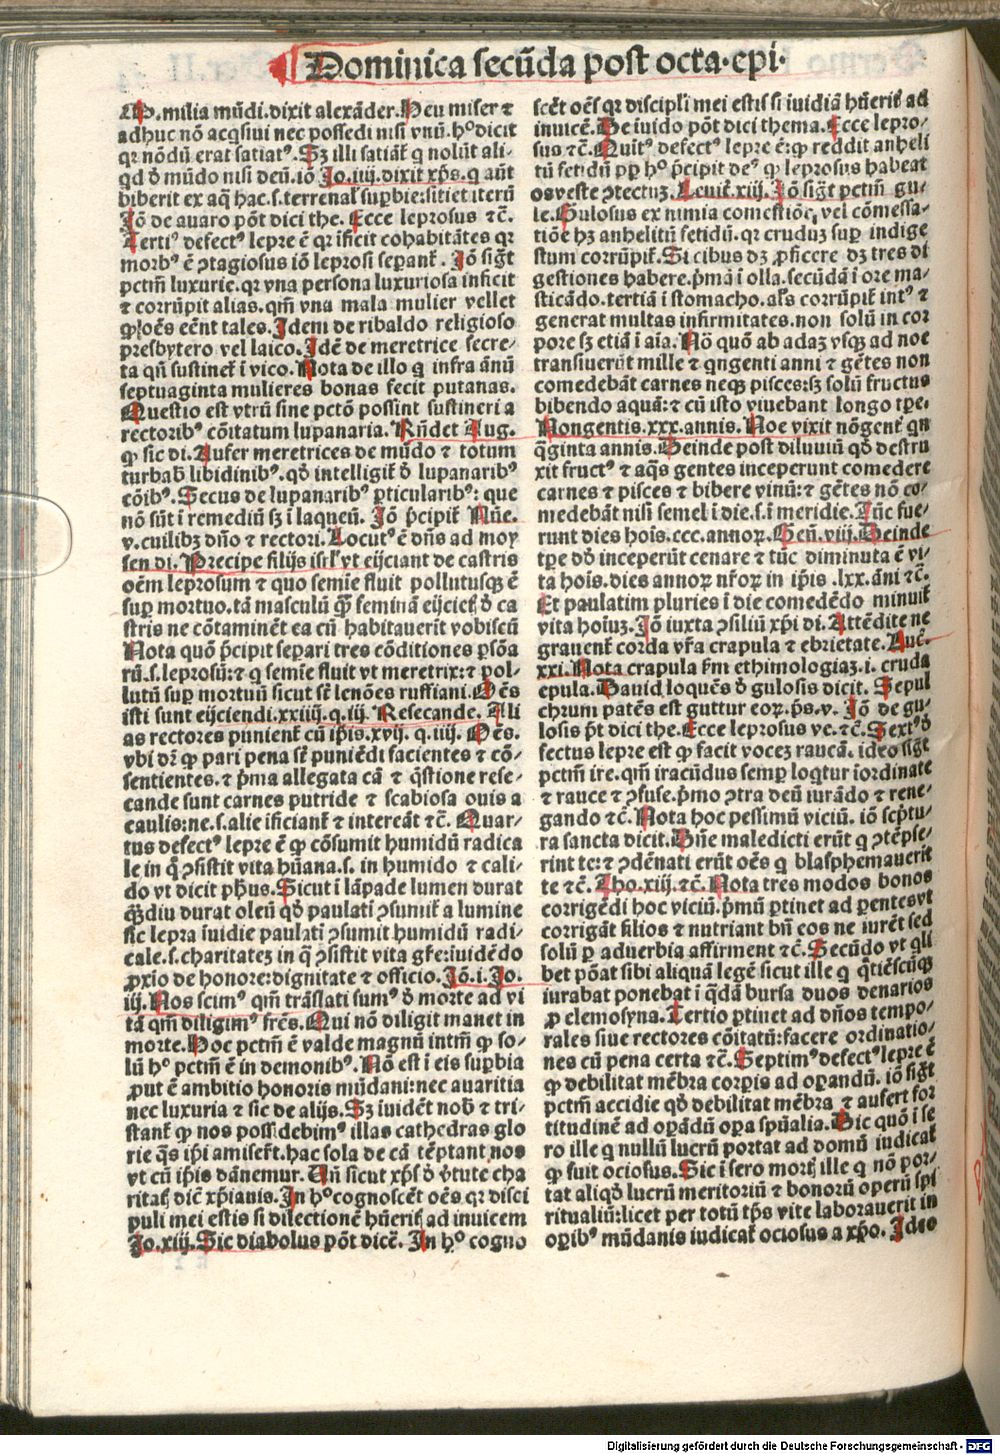 Dominica secūda post octa·epi·
M. milia mūdi. dixit alexāder. Heu miser ⁊
adhuc nō acqsiui nec possedi nisi vnū. hº dicit
qꝛ nōdū erat satiatꝰ. Sꝫ illi satiāt̄ q nolūt ali-
qd ð mūdo nisi deū. iō Jo. iiij. dixit xp̄s. q aūt
biberit ex aq̄ hac .s. terrenaꝝ suꝑbie: sitiet iterū
Jō de auaro pōt dici the. Ecce leprosus ⁊c̄.
Tertiꝰ defectꝰ lepre ē qꝛ īficit cohabitātes qꝛ
morbꝰ ē ꝯtagiosus iō leprosi seꝑant̄. Jō siḡt
pctm̄ luxurie. qꝛ vna persona luxuriosa inficit
⁊ corrūpit alias. qm̄ vna mala mulier vellet
ꝙ oēs eēnt tales. Jdem de ribaldo religioso
presbytero vel laico. Jdē de meretrice secre-
ta qn̄ sustinet̄ ī vico. Nota de illo q infra ānū
septuaginta mulieres bonas fecit putanas.
Questio est vtrū sine pctō possint sustineri a
rectoribꝰ cōitatum lupanaria. Rn̄det Aug.
ꝙ sic di. Aufer meretrices de mūdo ⁊ totum
turbab̄ libidinibꝰ. qð intelligit̄ ð lupanaribꝰ
cōibꝰ. Secus de lupanaribꝰ ꝑticularibꝰ: que
nō sūt ī remediū sꝫ ī laqueū. Jō p̄cipit̄ Nūe.
v. cuilibꝫ dn̄o ⁊ rectori. Locutꝰ ē dn̄s ad moy
sen di. Precipe filijs isrl̄ vt eijciant de castris
oēm leprosum ⁊ quo semīe fluit pollutusqꝫ ē
suꝑ mortuo. tā masculū q̄ꝫ feminā eijcietꝭ ð ca
stris ne cōtaminēt ea cū habitauerīt vobiscū
Nota quō p̄cipit separi tres cōditiones ꝑsōa
rū .s. leprosū: ⁊ q semīe fluit vt meretrix: ⁊ pol-
lutū suꝑ mortuū sicut st̄ lenōes ruffiani. Oēs
isti sunt eijciendi. xxiiij. q. iij. Resecande. Ali
as rectores punient̄ cū ip̄is. xvij. q. iiij. Oēs.
vbi dꝛ̄ ꝙ pari pena st̄ puniēdi facientes ⁊ cō-
sentientes. ⁊ p̄ma allegata cā ⁊ q̄stione rese-
cande sunt carnes putride ⁊ scabiosa ouis a
caulis: ne .s. alie īficiant̄ ⁊ intereāt ⁊c̄. Quar-
tus defectꝰ lepre ē ꝙ cōsumit humidū radica
le in q̄ ꝯsistit vita hūana .s. in humido ⁊ cali-
do vt dicit ph̄us. Sicut ī lāpade lumen durat
q̄ꝫdiu durat oleū qð paulatī ꝯsumit̄ a lumine
sic lepra īuidie paulatī ꝯsumit humidū radi-
cale .s. charitateꝫ in q̄ ꝯsistit vita gr̄e: īuidēdo
ꝓxīo de honore: dignitate ⁊ officio. Jō. i. Jo.
iij. Nos scimꝰ qm̄ trāslati sumꝰ ð morte ad vi
tā qm̄ diligimꝰ fr̄es. Qui nō diligit manet in
morte. Hoc pctm̄ ē valde magnū intm̄ ꝙ so-
lū hº pctm̄ ē in demonibꝰ. Nō est ī eis suꝑbia
ꝓut ē ambitio honoris mūdani: nec auaritia
nec luxuria ⁊ sic de alijs. Sꝫ iuidēt nob̄ ⁊ tri-
stant̄ ꝙ nos possidebimꝰ illas cathedras glo
rie q̄s ip̄i amiseꝝt. hac sola de cā tēptant nos
vt cū ip̄is dānemur. Un̄ sicut xp̄s ð v̄tute cha
ritatꝭ dic̄ xp̄ianis. Jn hº cognoscēt oēs qꝛ disci
puli mei estis si dilectionē hūeritꝭ ad inuicem
Jo. xiij. Sic diabolus pōt dicē. Jn hº cogno
scēt oēs qꝛ discipl̄i mei estis si iuidiā hūeritꝭ ad
inuicē. De iuido pōt dici thema. Ecce lepro-
sus ⁊c̄. Quītꝰ defectꝰ lepre ē: ꝙ reddit anheli
tū fetidū pp̄ hº p̄cipit deꝰ ꝙ leprosus habeat
os veste ꝯtectuꝫ. Leuit̄. xiij. Jō siḡt pctm̄ gu-
le. Gulosus ex nimia comestiōe, vel cōmessa-
tiōe hꝫ anhelitū fetidū. qꝛ cruduꝫ suꝑ indige
stum corrūpit̄. Si cibus dꝫ ꝓficere dꝫ tres di
gestiones habere. p̄mā ī olla. secūdā ī ore ma-
sticādo. tertiā ī stomacho. al̄s corrūpit̄ intꝰ ⁊
generat multas infirmitates. non solū in cor
pore sꝫ etiā ī aīa. Nō quō ab adaꝫ vsqꝫ ad noe
transiueꝝt mille ⁊ qngenti anni ⁊ gētes non
comedebāt carnes neqꝫ pisces: sꝫ solū fructus
bibendo aquā: ⁊ cū isto viuebant longo tꝑe.
Nongentis. xxx. annis. Noe vixit nōgent̄ qn
q̄ginta annis. Deinde post diluuiū qð destru
xit fructꝰ ⁊ aq̄s gentes inceperunt comedere
carnes ⁊ pisces ⁊ bibere vinū: ⁊ gētes nō co-
medebāt nisi semel ī die .s. ī meridie. Tūc fue-
runt dies hoīs. ccc. annoꝝ. Gen̄. viij. Deinde
tꝑe ðo inceperūt cenare ⁊ tūc diminuta ē vi-
ta hoīs. dies annoꝝ nr̄oꝝ in ip̄is .lxx. āni ⁊c̄.
Et paulatim pluries ī die comedēdo minuit̄
vita hoīuꝫ. Jō iuxta ꝯsiliū xp̄i di. Attēdite ne
grauent̄ corda vr̄a crapula ⁊ ebrietate. Luc̄.
xxi. Nota crapula ẜm ethimologiaꝫ .i. cruda
epula. Dauid loquēs ð gulosis dicit. Sepul
chrum patēs est guttur eoꝝ. ps̄. v. Jō de gu-
losis pt̄ dici the. Ecce leprosus ve. ⁊c̄. Sextꝰ ð
fectus lepre est ꝙ facit voceꝫ raucā. ideo siḡt
pctm̄ ire. qm̄ iracūdus semꝑ loqtur īordinate
⁊ rauce ⁊ ꝯfuse. p̄mo ꝯtra deū iurādo ⁊ rene-
gando ⁊c̄. Nota hoc pessimū viciū. iō scp̄tu-
ra sancta dicit. Dn̄e maledicti erūt q ꝯtēpse-
rint te: ⁊ ꝯdēnati erūt oēs q blasphemauerīt
te ⁊c̄. Tho. xiij. ⁊c̄. Nota tres modos bonos
corrigēdi hoc viciū. p̄mū ꝑtinet ad ꝑentes vt
corrigāt filios ⁊ nutriant bn̄ eos ne iurēt sed
solū ꝑ aduerbia affirment ⁊c̄. Secūdo vt qli
bet pōat sibi aliquā legē sicut ille q q̄tiēscūqꝫ
iurabat ponebat ī q̄dā bursa duos denarios
ꝓ elemosyna. Tertio ꝑtinet ad dn̄os tempo-
rales siue rectores cōitatū: facere ordinatio-
nes cū pena certa ⁊c̄. Septimꝰ defectꝰ lepre ē
ꝙ debilitat mēbra corꝑis ad oꝑandū. iō siḡt
pctm̄ accidie qð debilitat mēbra ⁊ aufert for
titudinē ad oꝑādū oꝑa spūalia. Sic quō ī se
ro ille q nullū lucrū portat ad domū iudicat̄
ꝙ fuit ociosus. Sic ī sero mortꝭ ille q nō por-
tat aliqð lucrū meritoriū ⁊ bonorū operū spi
ritualiū: licet per totū tp̄s vite laborauerit in
oꝑibꝰ mūdanis iudicat̄ ociosus a xp̄o. Jdeo
Digitalisierung gefördert durch die Deutsche Forschungsgemeinschaft - DFG